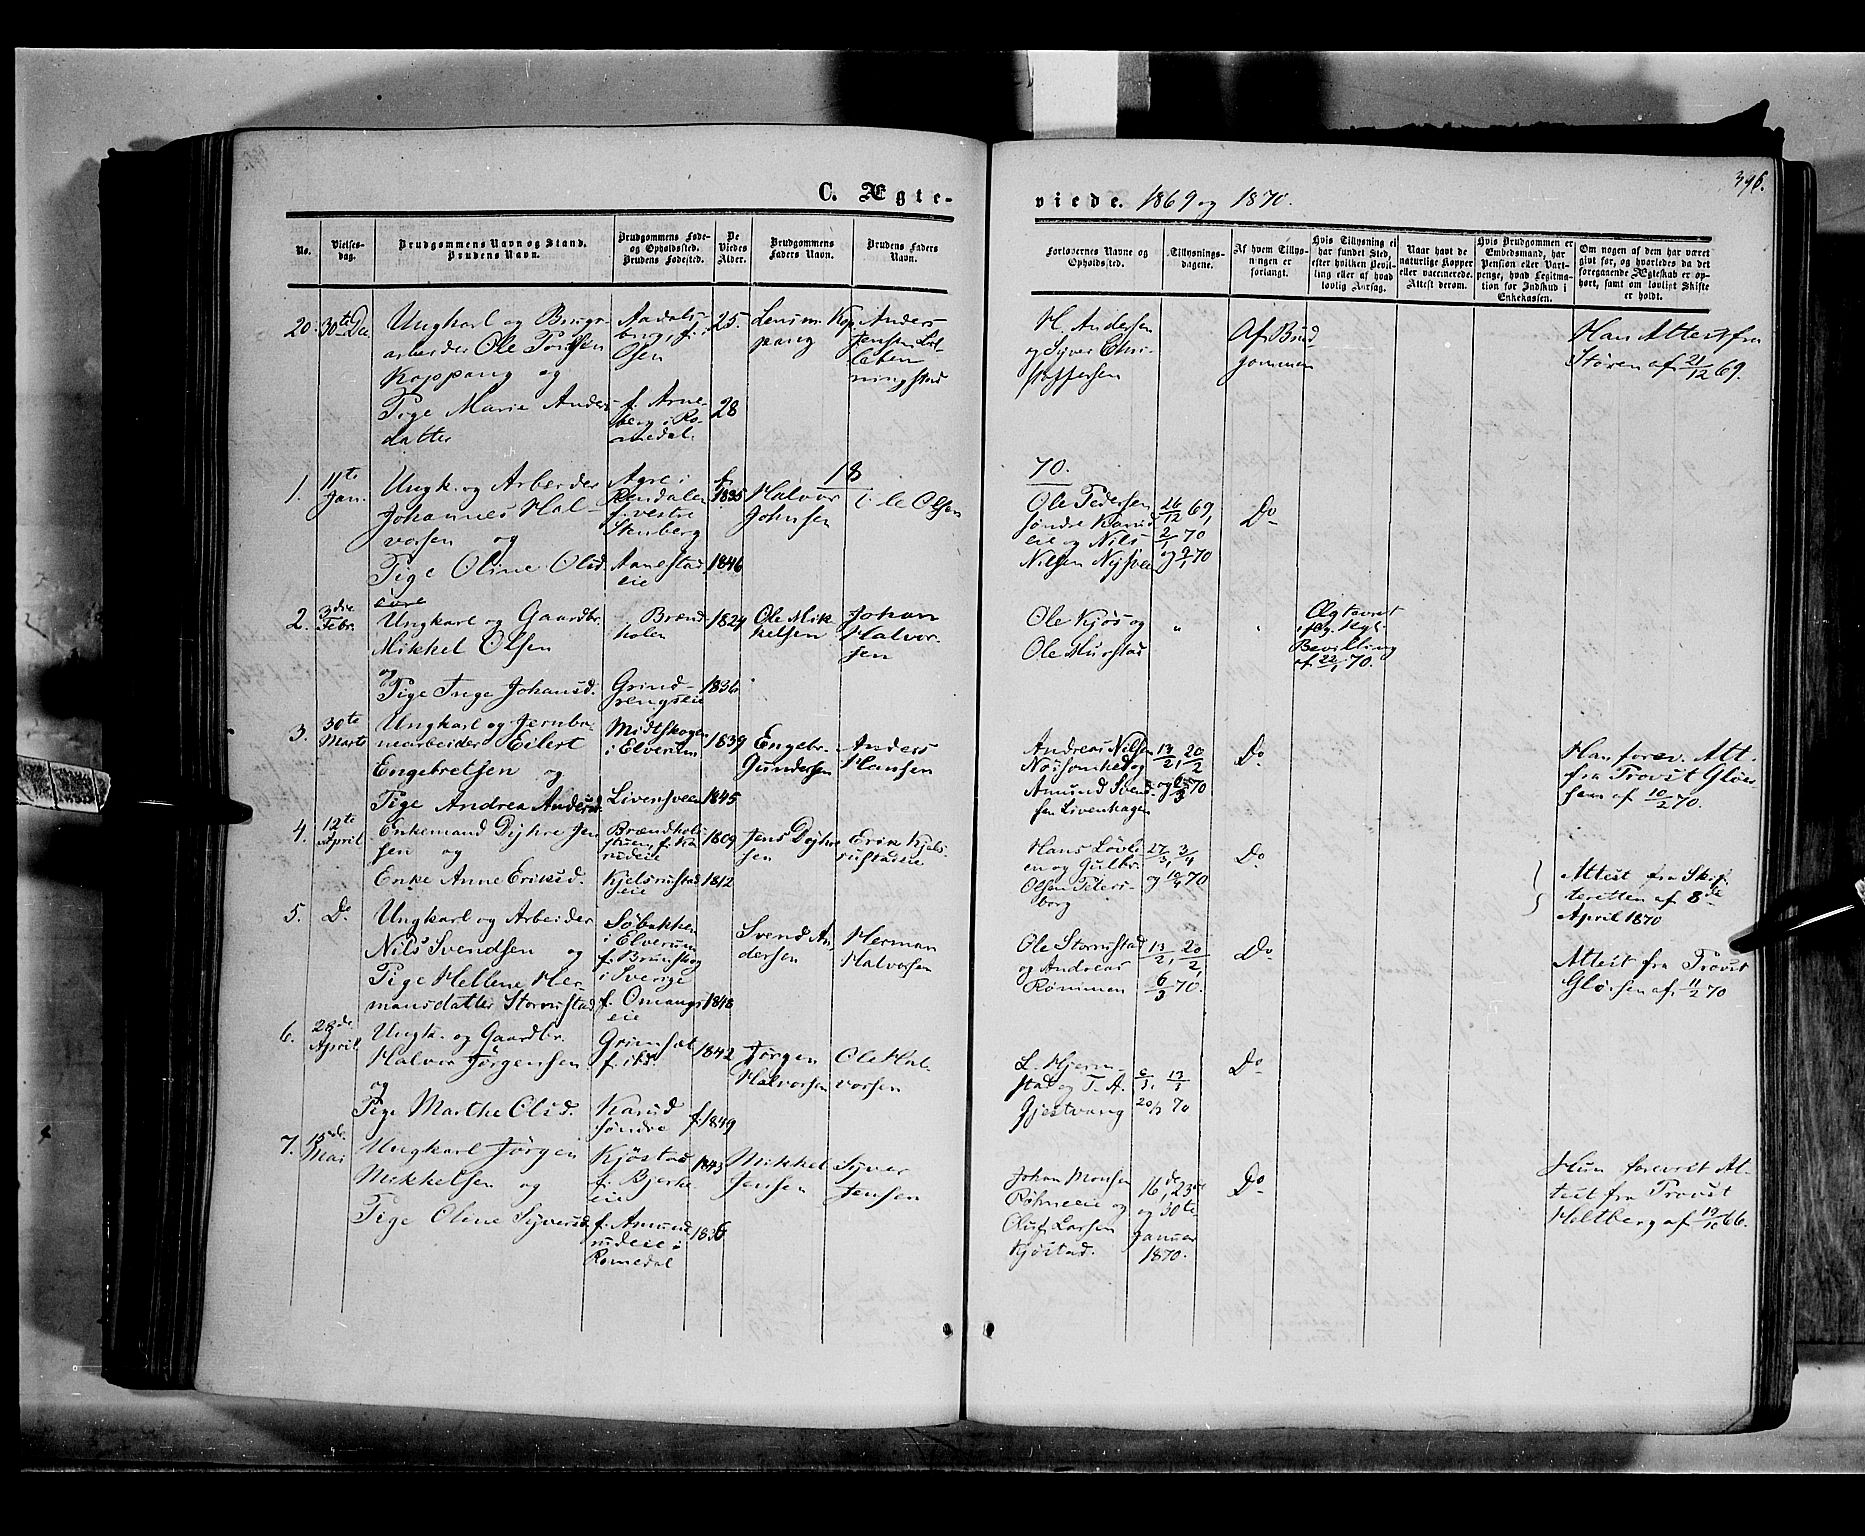 C. Ægte-
viede. 1869 og 1870.
No.
Vielses-
dag.
Brudgommens Navn og Stand.
Brudens Navn.
Brudgommens Føde-
og Opholdssted.
Brudens Fødested.
De
Viedes
Alder.
Brudgommens
Faders Navn.
Brudens Faders
Navn.
Forlovernes Navne og
Opholdssted.
Tillysnings-
dagene.
Af hvem Tillys-
ningen er
forlangt.
Hvis Tillysning ei
har fundet Sted,
efter hvilken Bevil-
ling eller af hvad
lovlig Aarsag.
Naar havt de
naturlige Kopper
eller vaccinerede.
Attest derom.
Hvis Brudgommen er
Embedsmand, har
Pension eller Vart-
penge, hvad Legitima-
tion for Indskud i
Enkekassen.
Om nogen af dem har været
givt før, og hvorledes da det
foregaaende Ægteskab er op-
hørt, samt om lovligt Skifte
er holdt.
20. 30te De
Ungkarl og Brugs-
arbeider Ole
Koppang og
Pige Marie Anders
datter
f. Arne-
berg i Ro-
medal.
25.
28
Anders
Jensen
H. Andersen
og Syver Chri-
stoffersen
Af Brud
gommen
Han Attest fra
Støren af 21/12 69.
18
70.
1. 11te
Jan.
Ungk. og Arbeider
Johannes Hal-
vorsen og
Pige Oline Olsd.
Agre i
Rendalen
f. vestre
Stenberg
Aanestad
eie
f. 1835
1846
Halvor
Johnsen
Ole Olsen
Ole Pedersen
søndre Karud
eie og Nils
Nilsen
26/12 69,
2/1 70
og 9/1 70
Do
2. 3die
Febr.
Ungkarl og Gaardbr.
Mikkel Olsen
og
Pige Inge Johansd.
Brænd
holen
Grind-
1824
1836
Ole Mik
kelsen
Johan
Halvor
sen
Ole Kjøs og
Ole
Ægteviet
Kgl.
Bevilling
af 22/1 70.
3. 30te
Marts
Ungkarl og Jernba-
nearbeider Eilert
Engebretsen og
Pige Andrea Andersd.
Midtskogen
i Elverum
Livensveen
1839
1845
Engebr.
Gundersen
Anders
Hansen
Andreas Nilsen
og
Amund Svend-
sen Livenhagen
13/2, 20/2
og 6/3 70
Do
Han forev. Att.
fra Provst Glør-
sen af 10/2 70.
4. 12te
April
Enkemand Dyhre Jen
sen og
Enke Anne Eriksd.
Kjelsrustad
eie
1809
1812
Jens Dyhre
sen
Erik Kjels-
rustadeie
Hans Løvli
en og Gulbr.
Olsen
borg
27/3, 3/4
og 10/4 70
Do
Attest fra Skif
teretten af 8de
April 1870
5. Do
Ungkarl og Arbeider
Nils Svendsen og
Pige Hellene Her-
mansdatter Stornstad
Søbakken
i Elverum
f. Brunskog
i Sverige
f. Omangs
eie
1848
Svend An-
dersen
Herman
Halvorsen
Ole Stornstad
og Andreas
Rønimen
13/2, 20/2,
6/3 70.
Do
Attest fra Provst
Glørsen af 11/2 70
6. 28de
April
Ungk. og Gaardbr.
Halvor Jørgensen
og
Pige Marthe Olsd.
Grimset
f. ibd.
Karud
søndre
1842
f. 1849
Jørgen
Halvorsen
Ole Hal-
vorsen
L. Hjerm-
stad og T. A.
Gjestvang
6/1, 13/1
20/1 70
Do
7. 15de
Mai
Ungkarl Jørgen
Mikkelsen og
Pige Oline Syversd.
Kjøstad
f. Bjerke
eie
f. Amund
rudeie i
Romedal
1843
1836
Mikkel
Jensen
Syver
Jensen
Johan Monsen
Røhneeie og
Oluf Larsen
Kjøstad.
16de, 23de
og 30te
Januar
1870.
Do
Hun forevist At-
test fra Provst
Holtberg af 19/10 66.